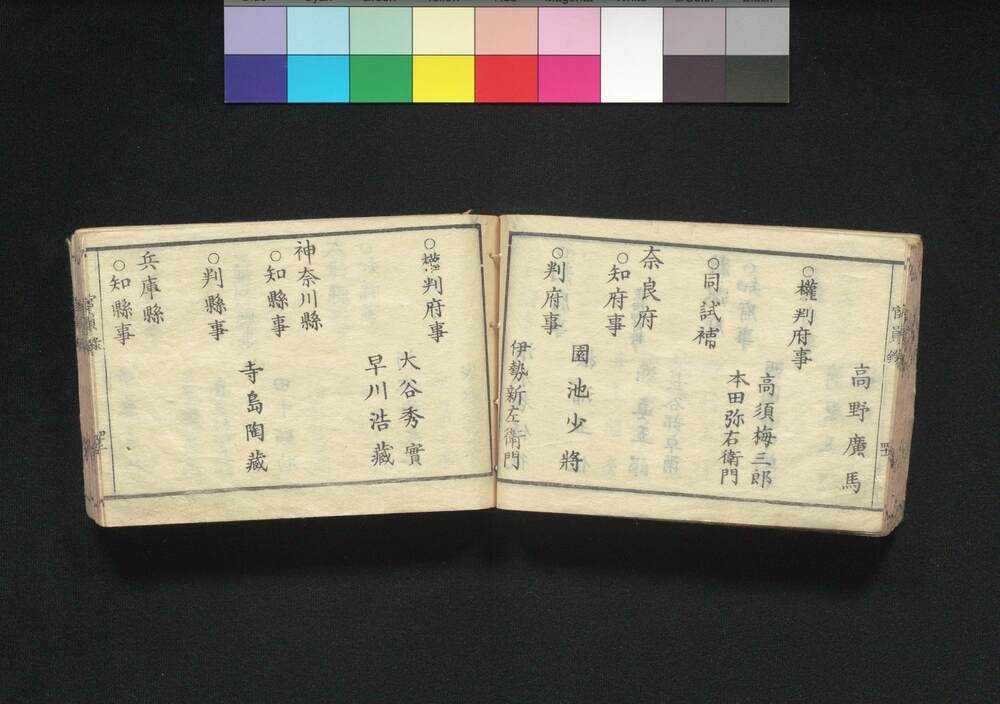 高野廣馬
○權判府事
高須梅三郎
本田弥右衛門
○同試補
奈良府
○知府事
園池少將
○判府事
伊勢新左衛門
○權判府事
大谷秀實
早川浩藏
神奈川縣
○知縣事
寺島陶藏
○判縣事
兵庫縣
○知縣事
官員錄